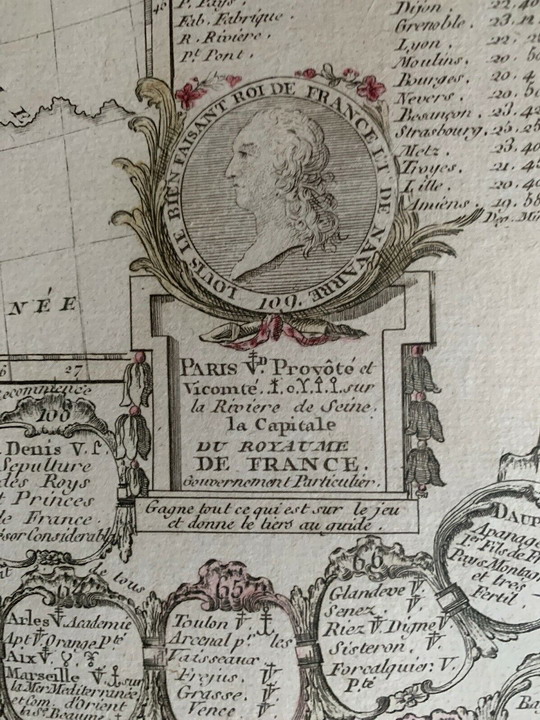 P. Pays.
Fab. Fabrique.
R. Riviere.
Pt. Pont.
Dijon.
Grenoble.
Lyon.
Moulins.
Bourges.
Nevers.
Besançon. 23.
Strasbourg.
Metz. 23.40
Troyes. 21.
Lille. 20.40
Amiens. 19.58
LOUIS LE BIEN FAISANT ROI DE FRANCE ET DE NAVARRE
109.
NÉE
27
Recommence
PARIS V. Provôté et
Vicomté. sur
la Riviere de Seine.
la Capitale
DU ROYAUME
DE FRANCE.
Gouvernement Particulier.
Gagne tout ce qui est sur le jeu
et donne le tiers au guide.
108
Denis V.
Sepulture
des Roys
et Princes
de France.
Trésor Considerable
de tous
64
Arles V. Academie
Apt V. Orange Pté
Aix V.
Marseille V. sur
la Mer Mediterranée
et Com. d'Orient
la Ste Beaume
65
Toulon V.
Arcenal pr. les
Vaisseaux
Frejus.
Grasse.
Vence
66
Glandeve V.
Senez.
Riez V. Digne V.
Sisteron.
Forcalquier. V.
Pté
DAUP
Apanage
1er Fils de Fr
Pays Montag
et très
Fertil.